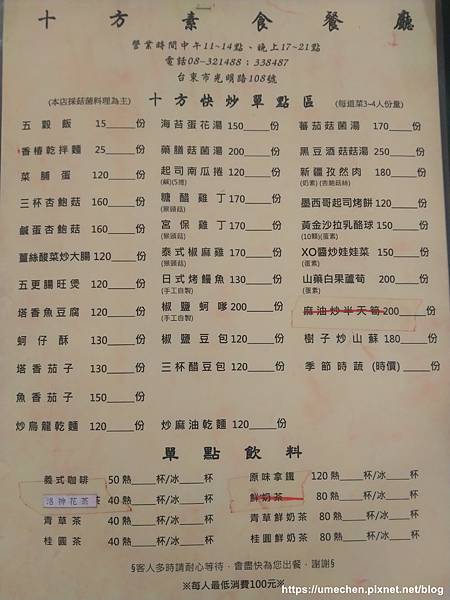 十方素食餐廳
營業時間中午11~14點、晚上17~21點
電話08-321488；338487
台東市光明路108號
(本店採菇菌料理為主) 十方快炒單點區 (每道菜3~4人份量)
五穀飯 15____份 海苔蛋花湯 150____份 蕃茄菇菌湯 170____份
香椿乾拌麵 25____份 藥膳菇菌湯 200____份 黑豆酒菇菇湯 250____份
菜脯蛋 120____份 起司南瓜捲 120____份 新疆孜然肉 180____份
(鹹)(5捲) (奶素) (杏鮑菇絲)
三杯杏鮑菇 160____份 糖醋雞丁 170____份 墨西哥起司烤餅 120____份
(猴頭菇)
鹹蛋杏鮑菇 160____份 宮保雞丁 170____份 黃金沙拉乳酪球 150____份
(猴頭菇) (10顆)(蛋素)
薑絲酸菜炒大腸 120____份 泰式椒麻雞 170____份 XO醬炒娃娃菜 150____份
(猴頭菇) (蛋素)
五更腸旺煲 120____份 日式烤鰻魚 130____份 山藥白果蘆筍 200____份
(手工自製) (蛋素)
塔香魚豆腐 120____份 椒鹽蚵嗲 200____份 麻油炒半天筍 200____份
(手工自製)
蚵仔酥 130____份 椒鹽豆包 120____份 樹子炒山蘇 180____份
塔香茄子 130____份 三杯醋豆包 120____份 季節時蔬 (時價)____份
魚香茄子 150____份
炒烏龍乾麵 120____份 炒麻油乾麵 120____份
單點飲料
義式咖啡 50熱____杯/冰____杯 原味拿鐵 120熱____杯/冰____杯
洛神花茶 茶 40熱____杯/冰____杯 鮮奶茶 80熱____杯/冰____杯
青草茶 40熱____杯/冰____杯 青草鮮奶茶 80熱____杯/冰____杯
桂圓茶 40熱____杯/冰____杯 桂圓鮮奶茶 80熱____杯/冰____杯
§客人多時請耐心等待，會盡快為您出餐，謝謝§
※每人最低消費100元※
https://umechen.pixnet.net/blog